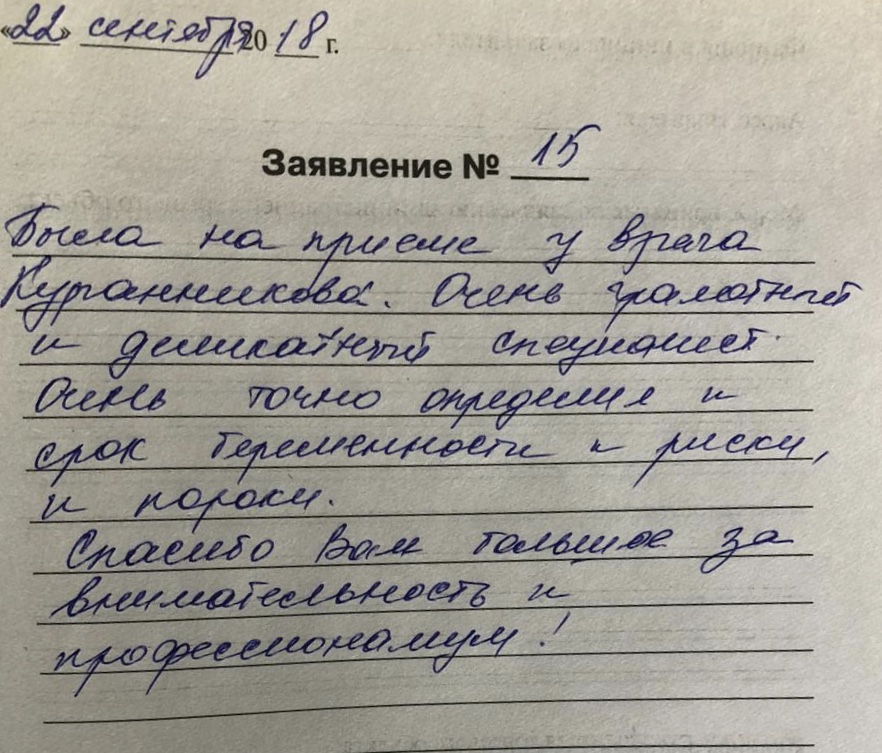 «22» сентября 2018 г.
Заявление № 15
Была на приеме у врача
Курганникова. Очень грамотный
и деликатный специалист.
Очень точно определил и
срок беременности и риски,
и пороки.
Спасибо Вам большое за
внимательность и
профессионализм!